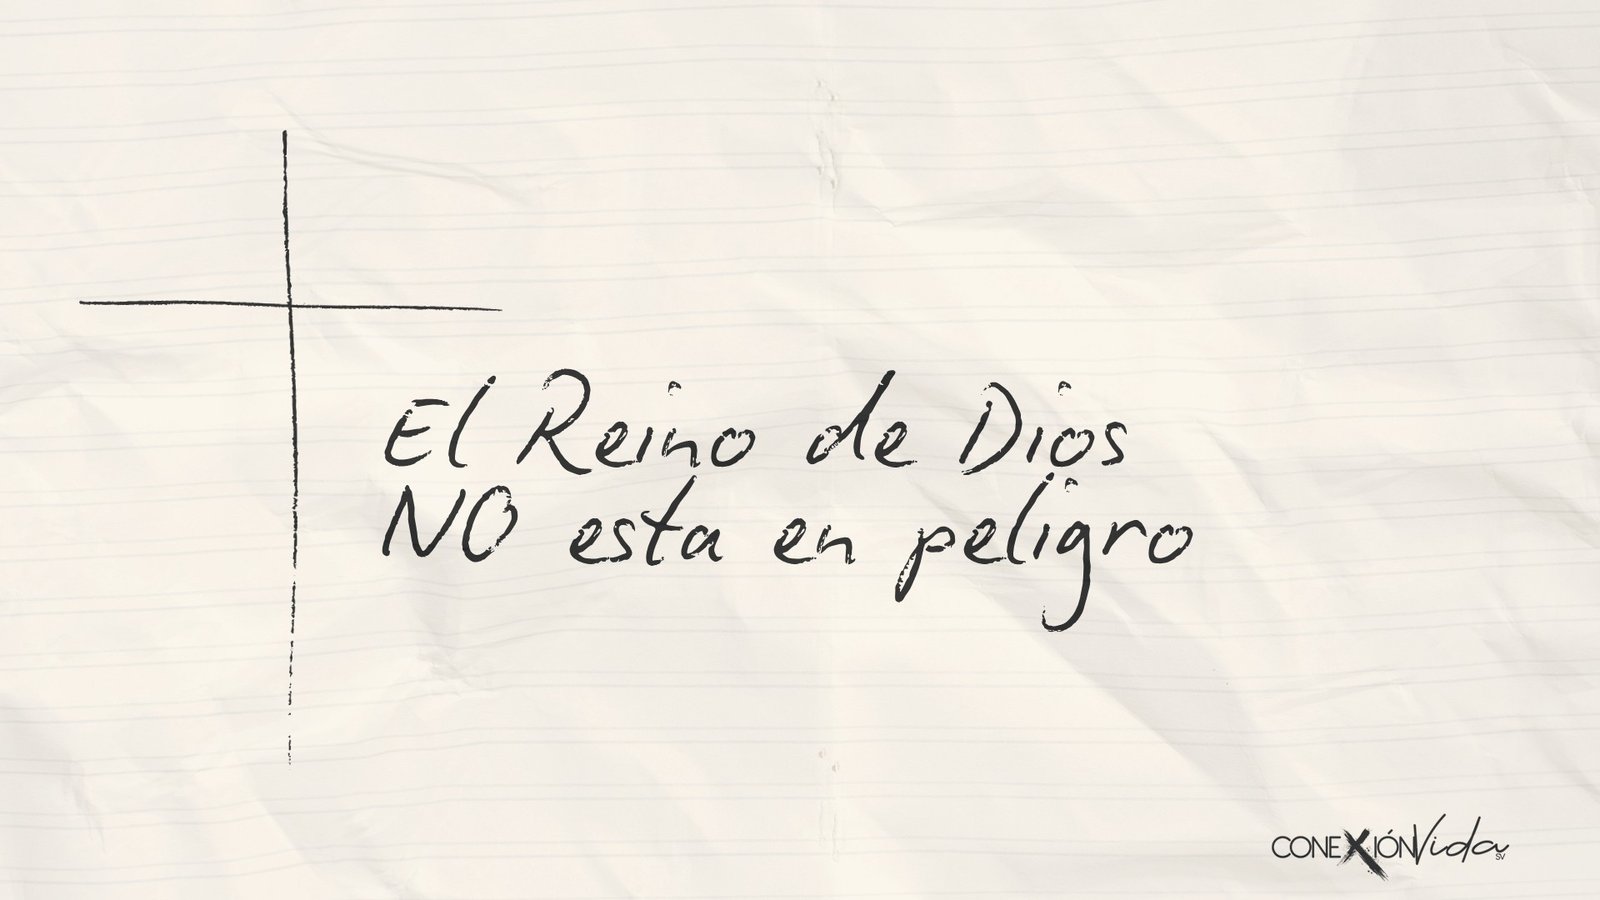 El Reino de Dios
NO esta en peligro
CONEXIÓNVida
SV